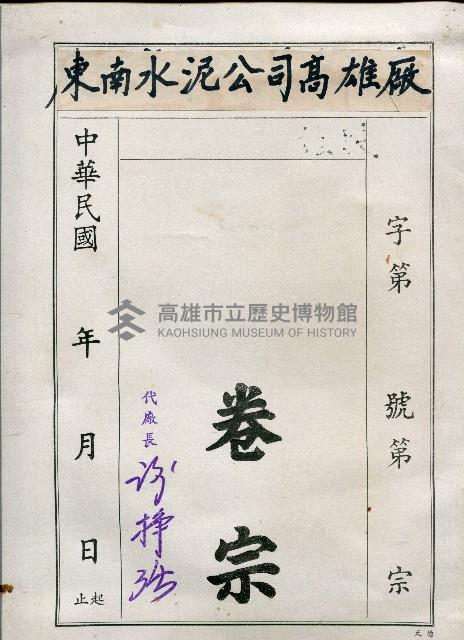 東南水泥公司高雄廠
字第　號第　宗
卷宗
代廠長
中華民國　年　月　日
起止
高雄市立歷史博物館
KAOHSIUNG MUSEUM OF HISTORY